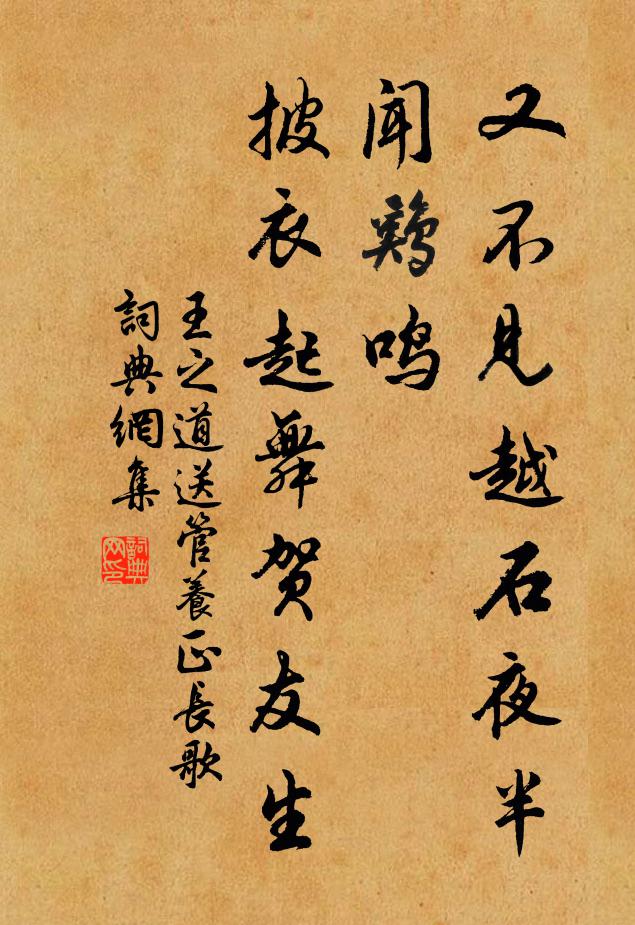 又不見越石夜半
聞鷄鳴
披衣起舞賀友生
王之道送管養正長歌
詞典網集
詞典网印